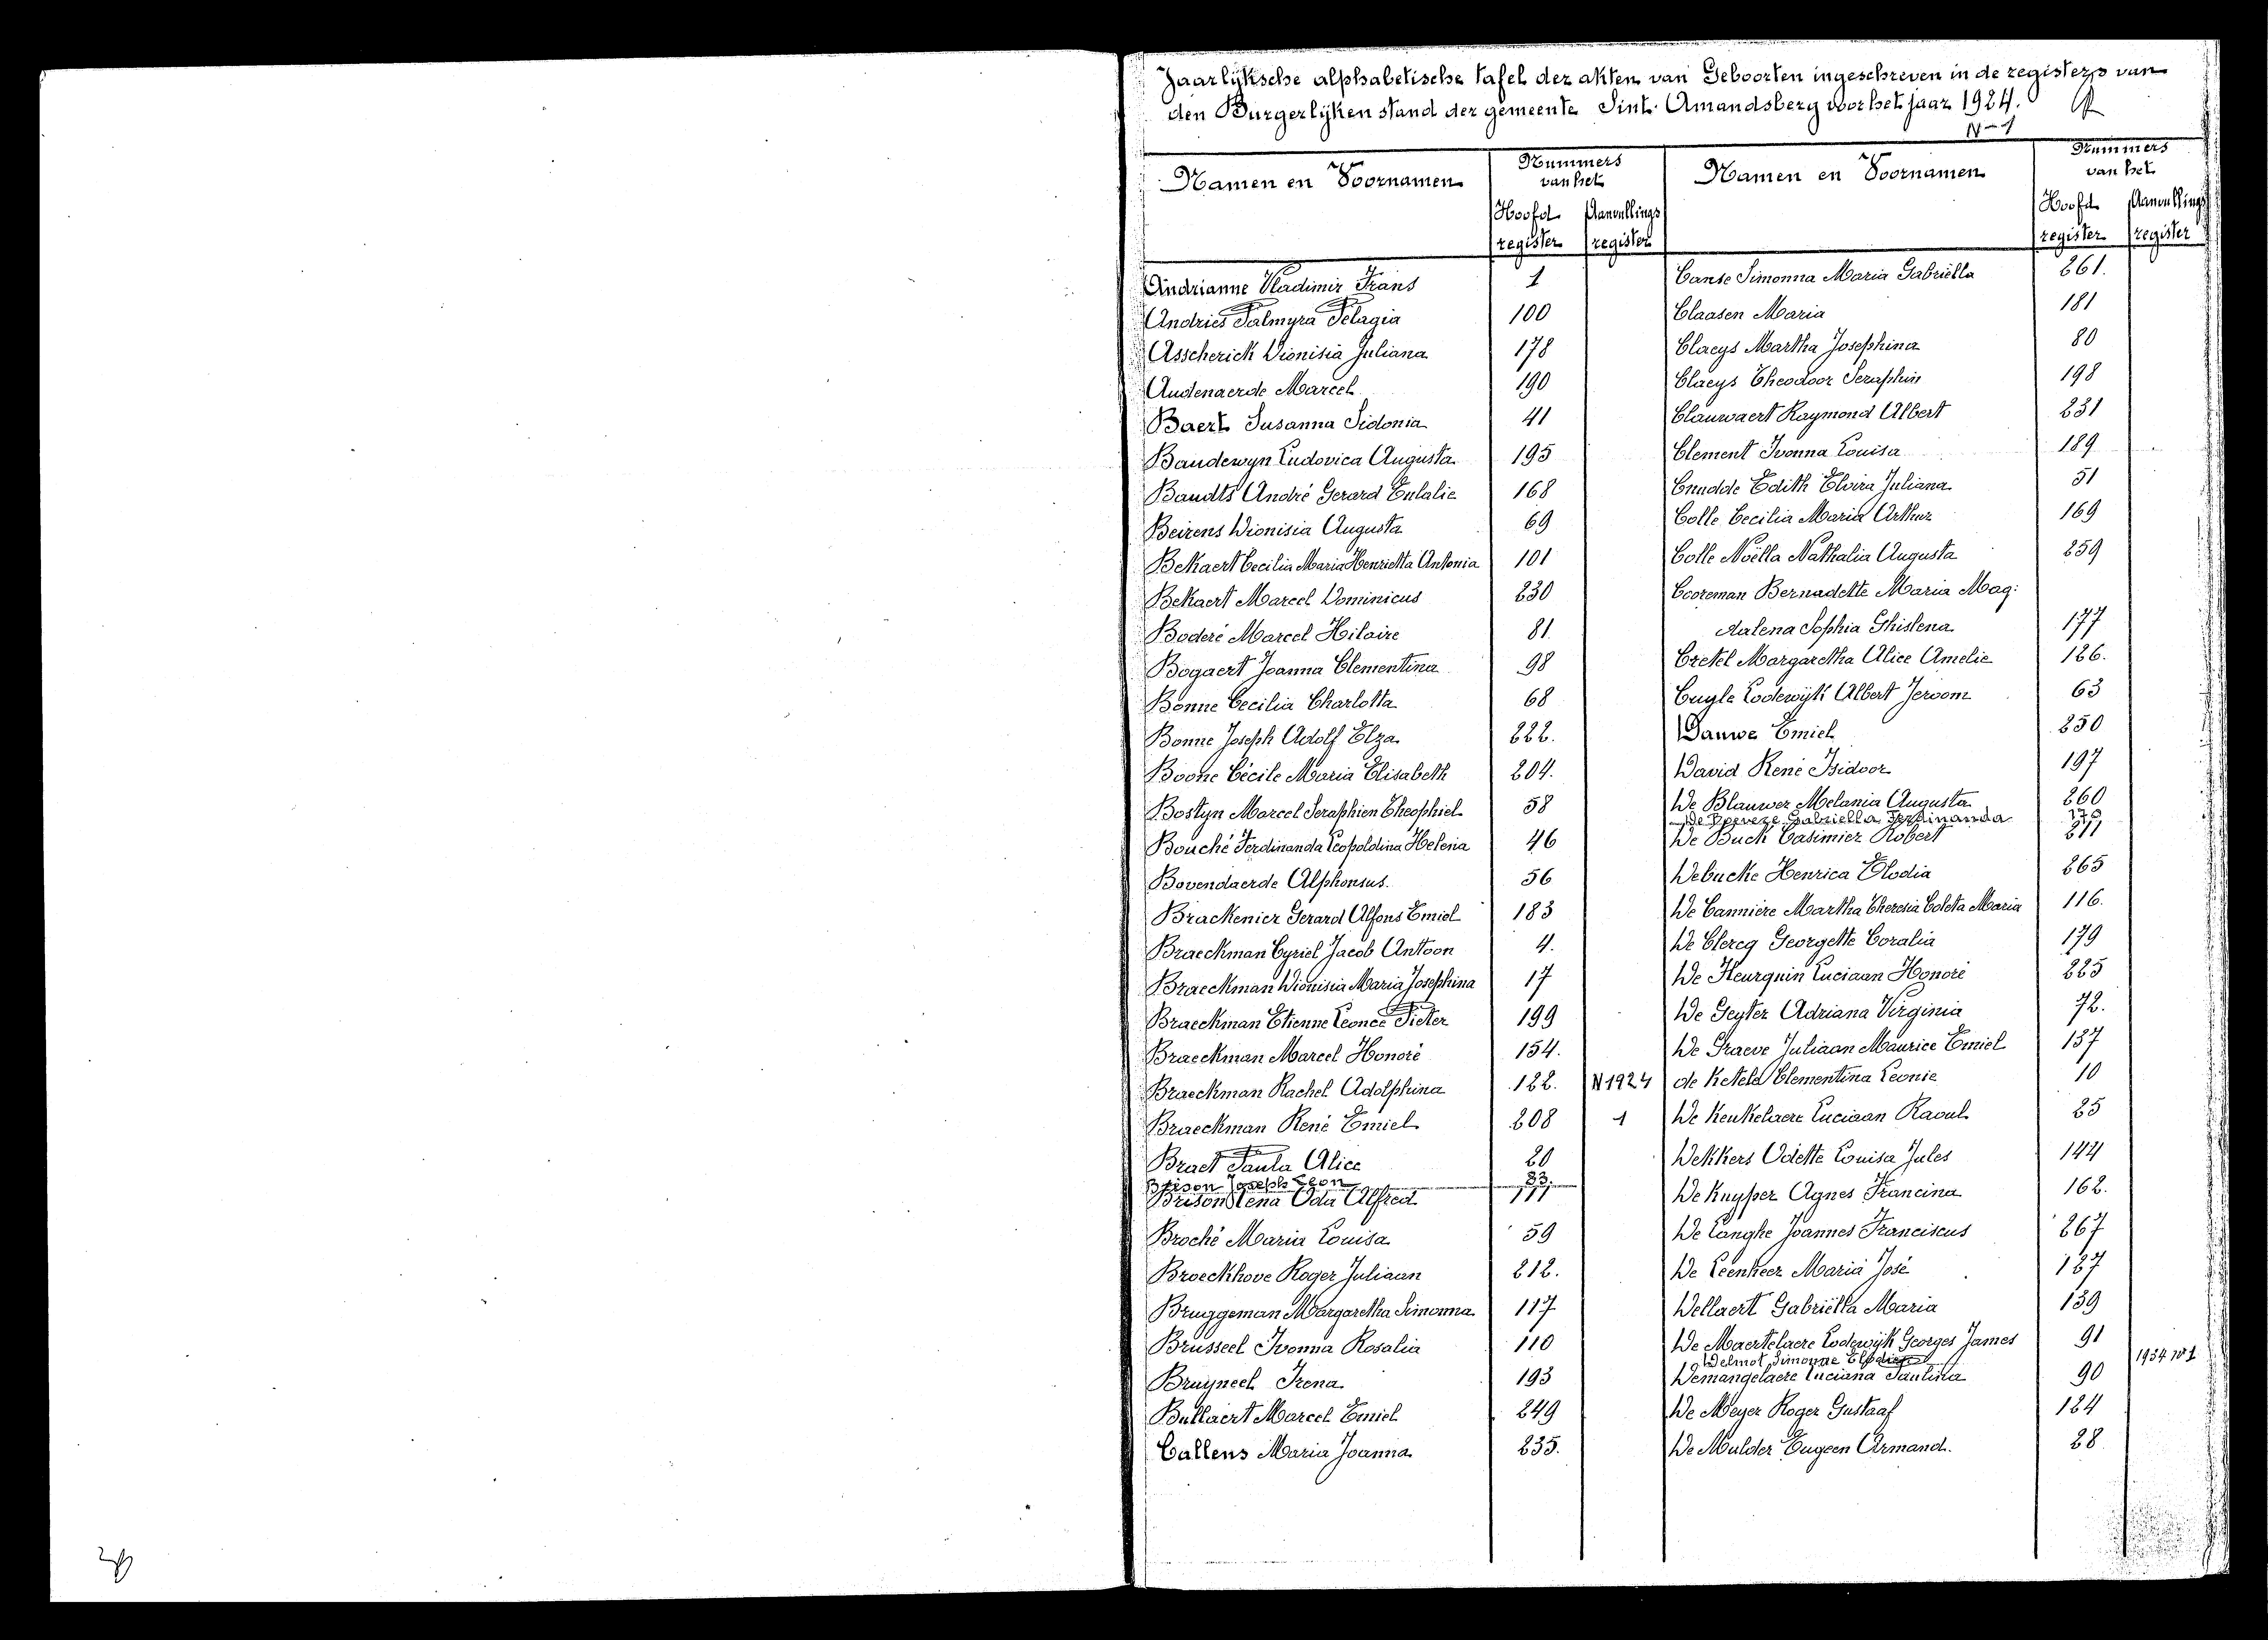 Jaarlijksche alphabetische tafel der akten van Geboorten ingeschreven in de registers van
den Burgerlijken stand der gemeente Sint Amandsberg voor het jaar 1924.
N-1
Namen en Voornamen
Nummers
van het
Hoofd register
Aanvullings register
Andrianne Vladimir Frans 1
Andries Palmyra Pelagia 100
Asscherick Dionisia Juliana 178
Audenaerde Marcel 190
Baert Susanna Sidonia 41
Baudewyn Ludovica Augusta 195
Baudts André Gerard Eulalie 168
Beirens Dionisia Augusta 69
Bekaert Cecilia Maria Henrietta Antonia 101
Bekaert Marcel Dominicus 230
Boderé Marcel Hilaire 81
Bogaert Joanna Clementina 98
Bonne Cecilia Charlotta 68
Bonne Joseph Adolf Elza 222.
Boone Cécile Maria Elisabeth 204.
Bostyn Marcel Seraphien Theophiel 58
Bouché Ferdinanda Leopoldina Helena 46
Bovendaerde Alphonsus. 56
Brackenier Gerard Alfons Emiel 183
Braeckman Cyriel Jacob Antoon 4.
Braeckman Dionisia Maria Josephina 17
Braeckman Etienne Leonce Pieter 199
Braeckman Marcel Honoré 154.
Braeckman Rachel Adolphina 122. N 1924
Braeckman René Emiel 208 1
Braet Paula Alice 20
Brison Joseph Leon 83.
Brison Lena Oda Alfred 111
Broché Maria Louisa 59
Broeckhove Roger Juliaan 212.
Bruggeman Margaretha Simonna 117
Brusseel Ivonna Rosalia 110
Bruyneel Irena 193
Bullaert Marcel Emiel 249
Callens Maria Joanna 235.
Namen en Voornamen
Nummers
van het
Hoofd register
Aanvullings register
Canse Simonna Maria Gabriella 261.
Claasen Maria 181
Claeys Martha Josephina 80
Claeys Theodoor Seraphin 198
Clauwaert Raymond Albert 231
Clement Ivonna Louisa 189
Cnudde Edith Elvira Juliana 51
Colle Cecilia Maria Arthur 169
Colle Noëlla Nathalia Augusta 259
Cooreman Bernadette Maria Mag:
dalena Sophia Ghislena 177
Cretel Margaretha Alice Amelie 126.
Cuyle Lodewijk Albert Jeroom 63
Dauwe Emiel 250
David René Isidoor 197
De Blauwer Melania Augusta 260
Gabriella Ferdinanda 170
De Buck Casimier Robert 211
Debucke Henrica Elodia 265
De Canniere Martha Theresia Coleta Maria 116.
De Clercq Georgette Coralia 179
De Fleurquin Luciaan Honoré 225
De Geyter Adriana Virginia 72.
De Graeve Juliaan Maurice Emiel 137
de Ketele Clementina Leonie 10
De Keukelaere Luciaan Raoul 25
Dekkers Odette Louisa Jules 144
De Kuyper Agnes Francina 162.
De Langhe Joannes Franciscus 267
De Leenheer Maria José 127
Dellaert Gabriëlla Maria 139
De Maertelaere Lodewijk Georges James 91
Delmot Simonne 1934 Nº 1
Demangelaere Luciana Paulina 90
De Meyer Roger Gustaaf 124
De Mulder Eugeen Armand. 28